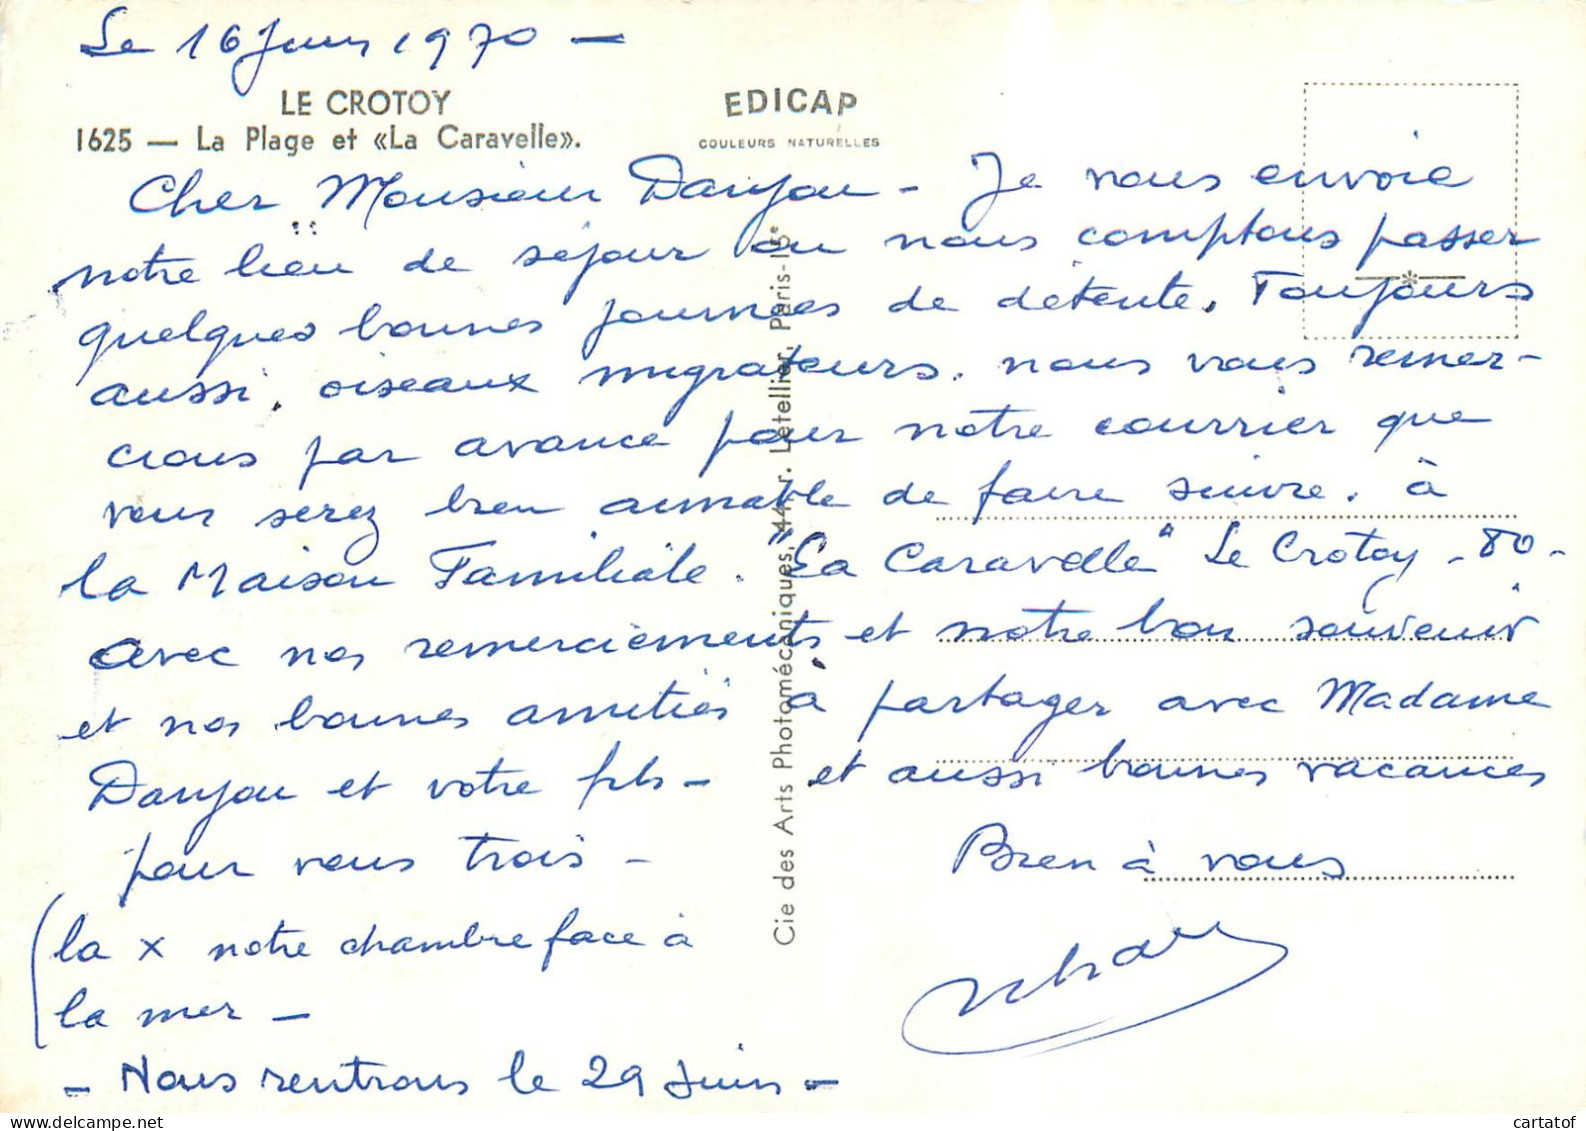 Le 16 Juin 1970 —
LE CROTOY
1625 — La Plage et «La Caravelle».
EDICAP
COULEURS NATURELLES
Cher Monsieur Danjou - Je vous envoie
notre lieu de séjour ou nous comptons passer
quelques bonnes journées de détente. Toujours
aussi. oiseaux migrateurs. nous vous remer-
cions par avance pour notre courrier que
vous serez bien aimable de faire suivre. à
la Maison Familiale. "La Caravelle" Le Crotoy - 80 -
avec nos remerciements et notre bon souvenir
et nos bonnes amitiés à partager avec Madame
Danjou et votre fils - et aussi bonnes vacances
pour vous trois - Bien à vous
(la x notre chambre face à
la mer -
- Nous rentrons le 29 Juin -
Cie des Arts Photomécaniques, 44, r. Letellier, Paris-15e
*
cartatof